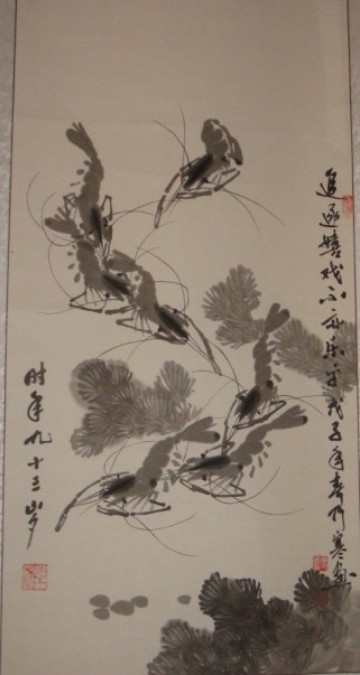 追逐嬉戏不亦乐乎戊子年寒画
时年九十三岁